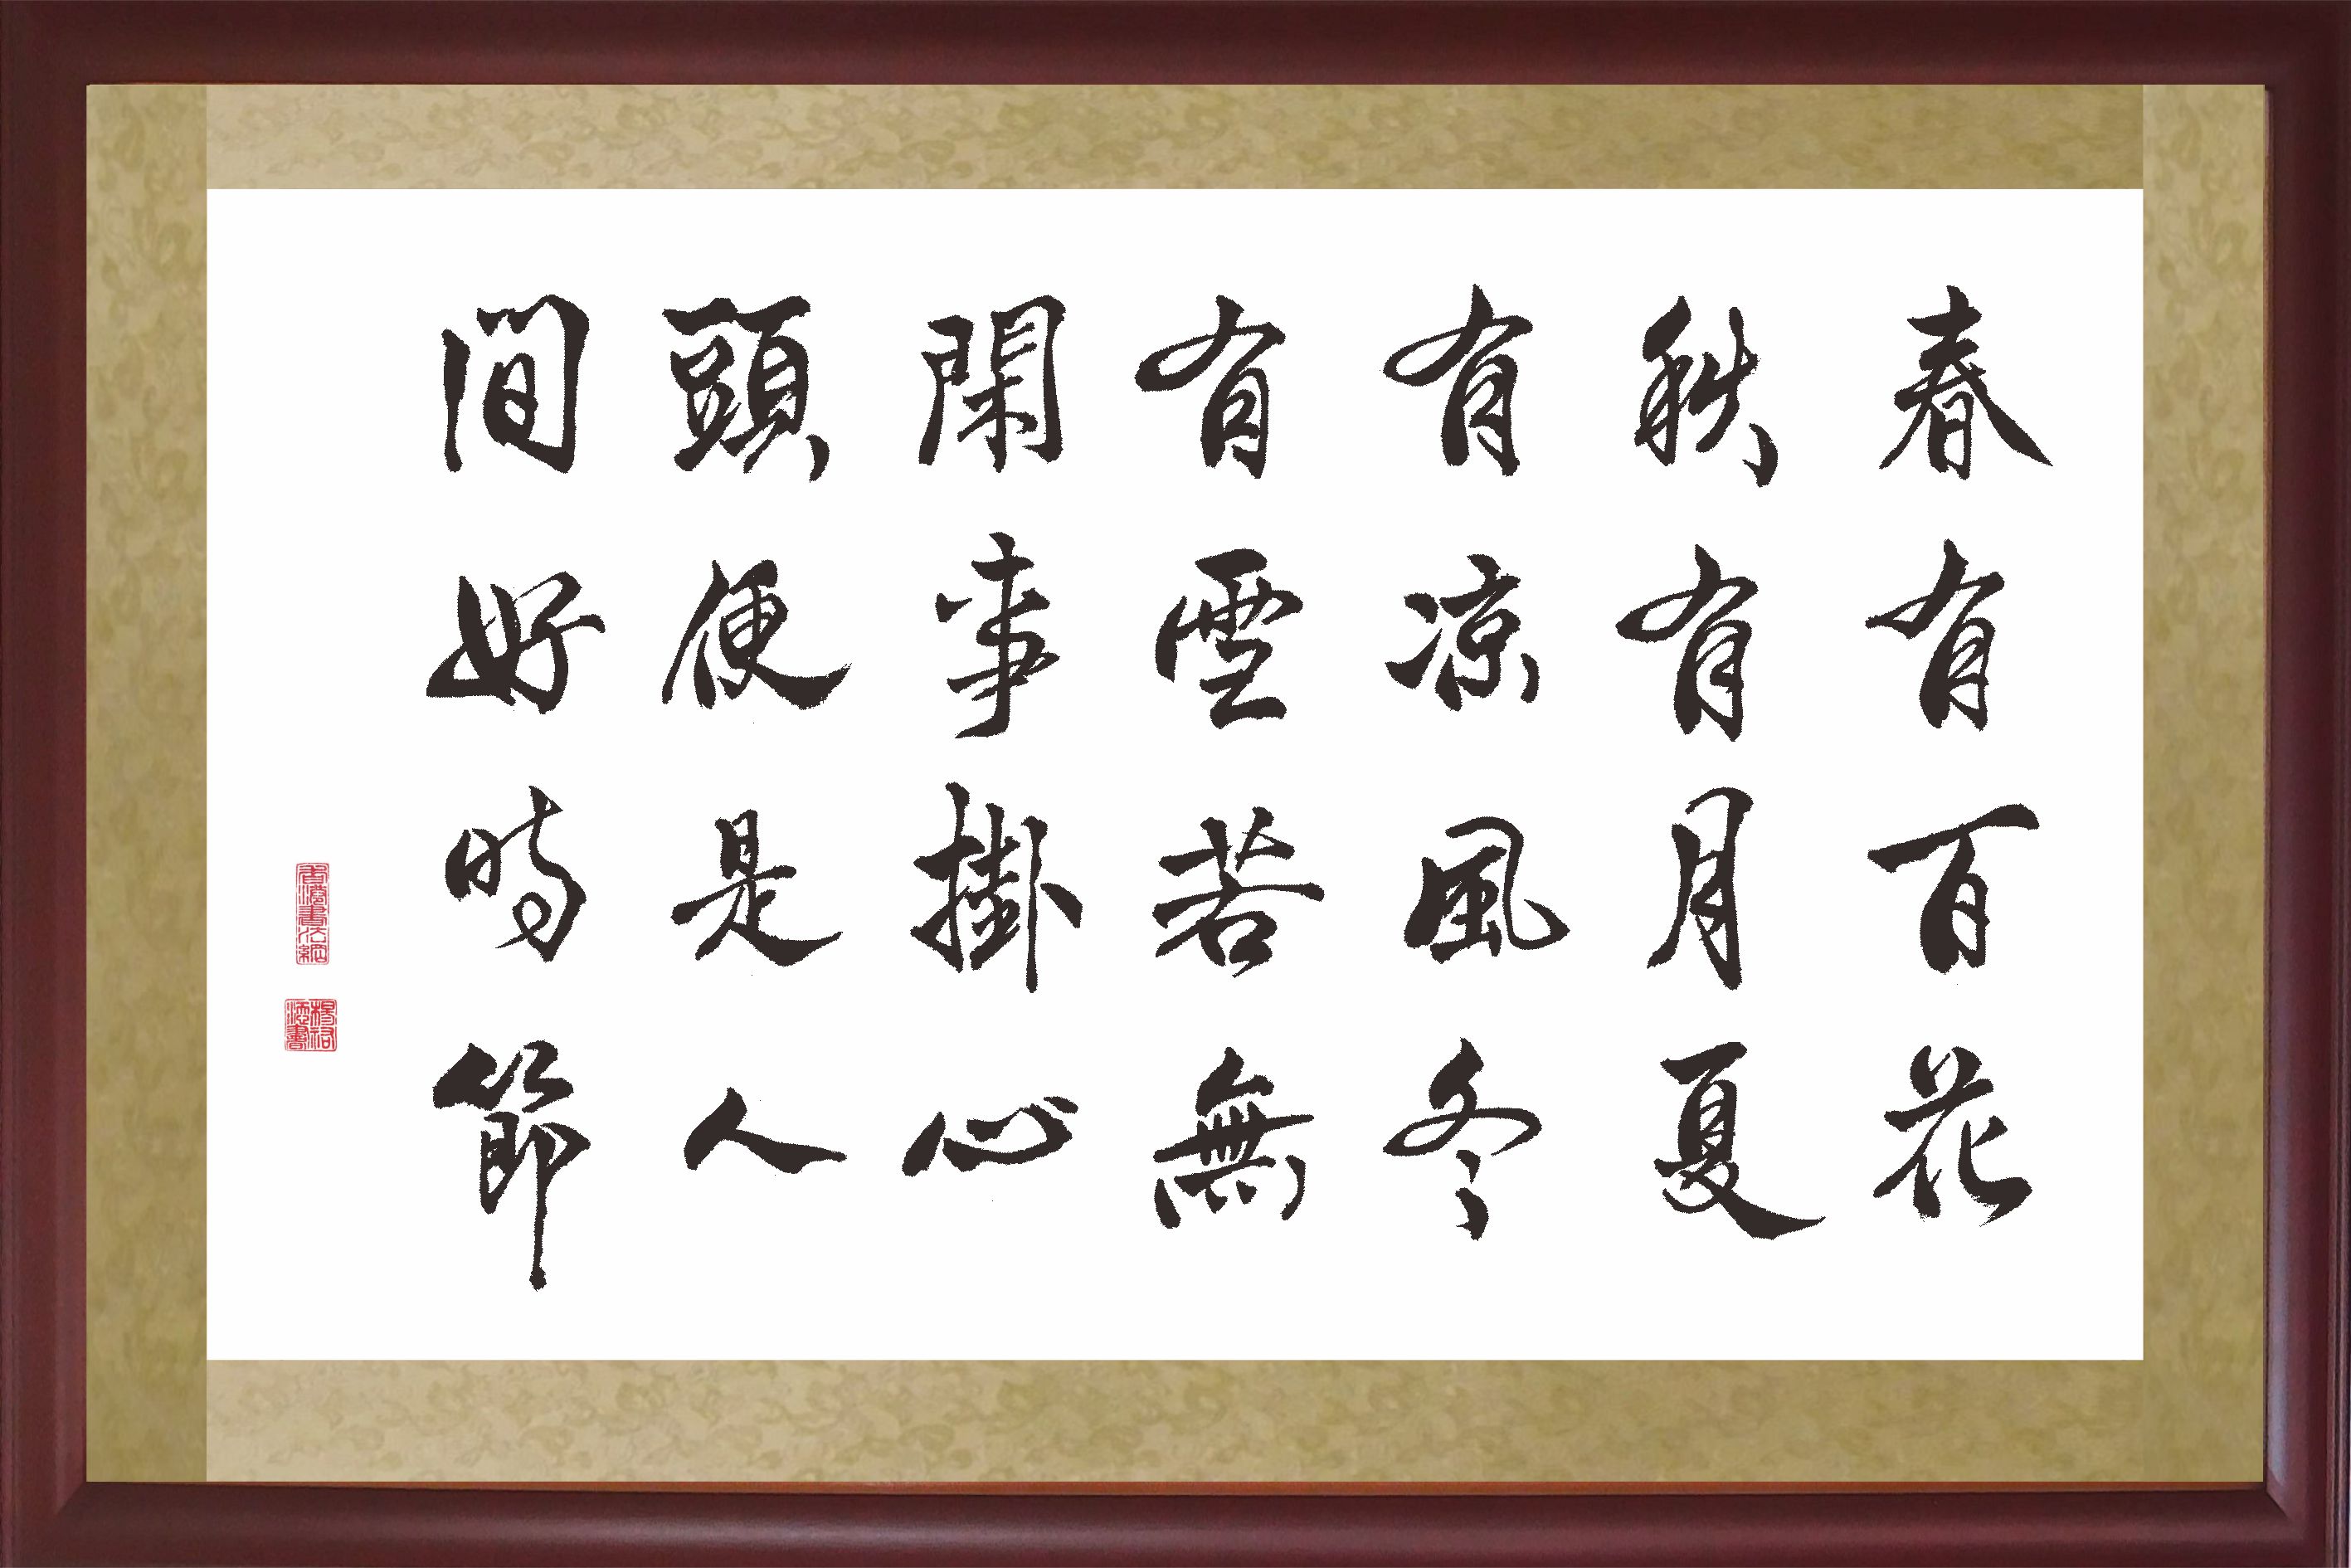 春有百花
秋有月夏
有凉風冬
有雪若無
閑事掛心
頭便是人
间好時節